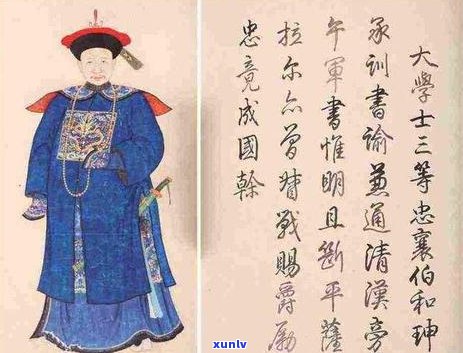 大學士三等忠襄伯和珅
承訓書諭兼通清漢旁
午軍書惟明且斷平薩
拉尔亦曾督戰賜爵勵
忠竟成國幹
xunlv